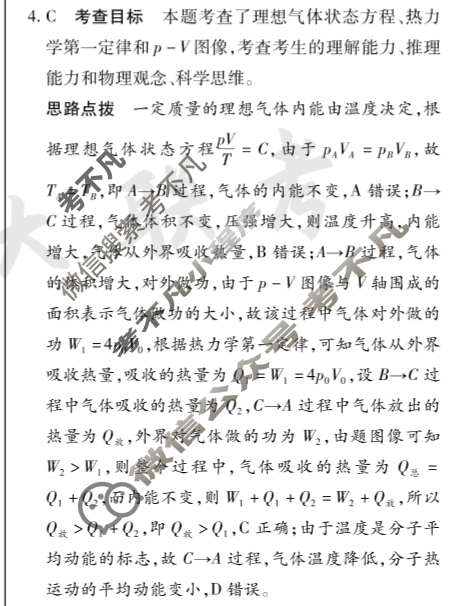 4. C 考查目标 本题考查了理想气体状态方程、热力
学第一定律和 p－V 图像,考查考生的理解能力、推理
能力和物理观念、科学思维。
思路点拨 一定质量的理想气体内能由温度决定,根
据理想气体状态方程 pV/T = C, 由于 p_A V_A = p_B V_B, 故
T_A = T_B, 即 A→B 过程,气体的内能不变, A 错误; B→
C 过程,气体体积不变,压强增大,则温度升高,内能
增大,气体从外界吸收热量, B 错误; A→B 过程,气体
的体积增大,对外做功,由于 p－V 图像与 V 轴围成的
面积表示气体做功的大小,故该过程中气体对外做的
功 W₁ = 4p₀V₀, 根据热力学第一定律,可知气体从外界
吸收热量,吸收的热量为 Q₁ = W₁ = 4p₀V₀, 设 B→C 过
程中气体吸收的热量为 Q₂, C→A 过程中气体放出的
热量为 Q放, 外界对气体做的功为 W₂, 由题图像可知
W₂ > W₁, 则整个过程中,气体吸收的热量为 Q总 =
Q₁ + Q₂, 而内能不变,则 W₁ + Q₁ + Q₂ = W₂ + Q放, 所以
Q放 > Q₁ + Q₂, 即 Q放 > Q₁, C 正确;由于温度是分子平
均动能的标志,故 C→A 过程,气体温度降低,分子热
运动的平均动能变小, D 错误。
考不凡
微信搜索 考不凡小程序
微信公众号 考不凡
大联考